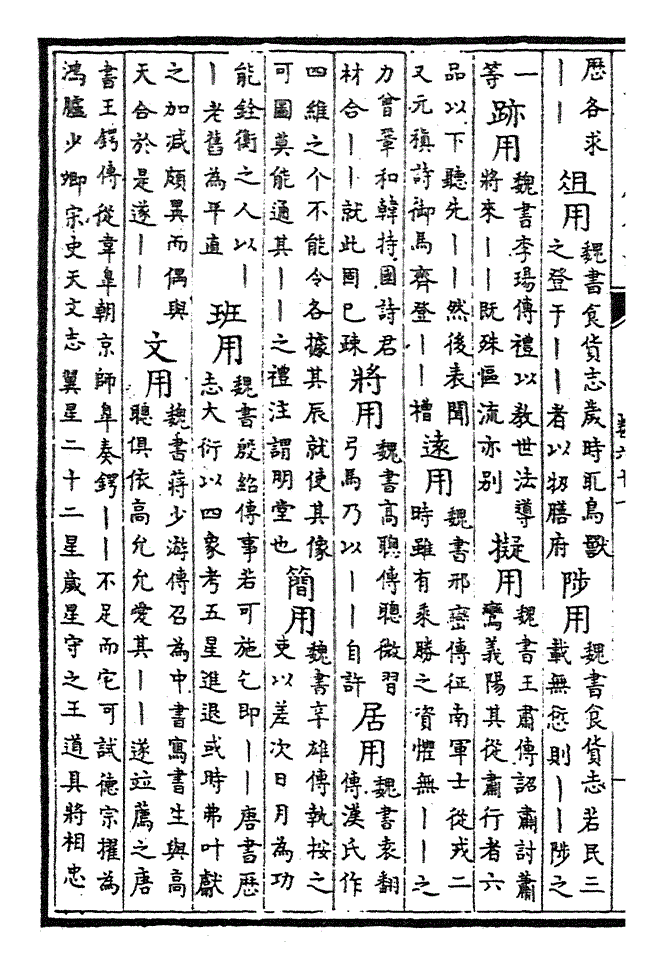 歷各求
｜｜
俎用
魏書食貨志歲時取鳥獸
之登于｜｜者以牣膳府
陟用
魏書食貨志若民三
載無愆則｜｜陟之
一
等
跡用
魏書李瑒傳禮以教世法導
將來｜｜既殊慪流亦別
擬用
魏書王肅傳詔肅討蕭
鸞義陽其從肅行者六
品以下聽先｜｜然後表聞
又元稹詩御馬齊登｜｜槽
遠用
魏書邢巒傳征南軍士從戎二
時雖有乘勝之資懼無｜｜之
力曾鞏和韓持國詩君
材合｜｜就此固已疎
將用
魏書高聰傳聰微習
弓馬乃以｜｜自許
居用
魏書袁翻
傳漢氏作
四維之个不能令各據其辰就使其像
可圖莫能通其｜｜之禮注謂明堂也
簡用
魏書辛雄傳執按之
吏以差次日月為功
能銓衡之人以｜
｜老舊為平直
班用
魏書殷紹傳事若可施乞即｜｜唐書歷
志大衍以四象考五星進退或時弗叶獻
之加減頗異而偶與
天合於是遂｜｜
文用
魏書蔣少游傳召為中書寫書生與高
聰俱依高允允愛其｜｜遂竝薦之唐
書王鍔傳從韋皋朝京師皋奏鍔｜｜不足而它可試德宗擢為
鴻臚少卿宗史天文志翼星二十二星歲星守之王道具將相忠